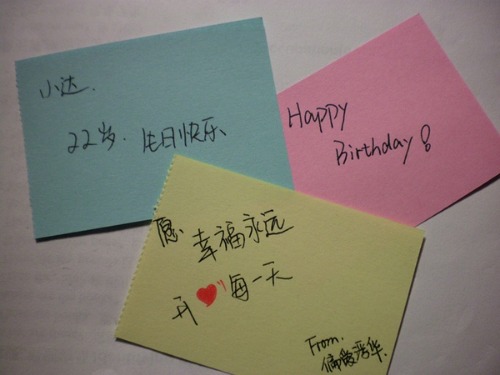 小达.
22岁.生日快乐
Happy
Birthday!
愿、幸福永远
开❤每一天
From.
偏爱晋华.